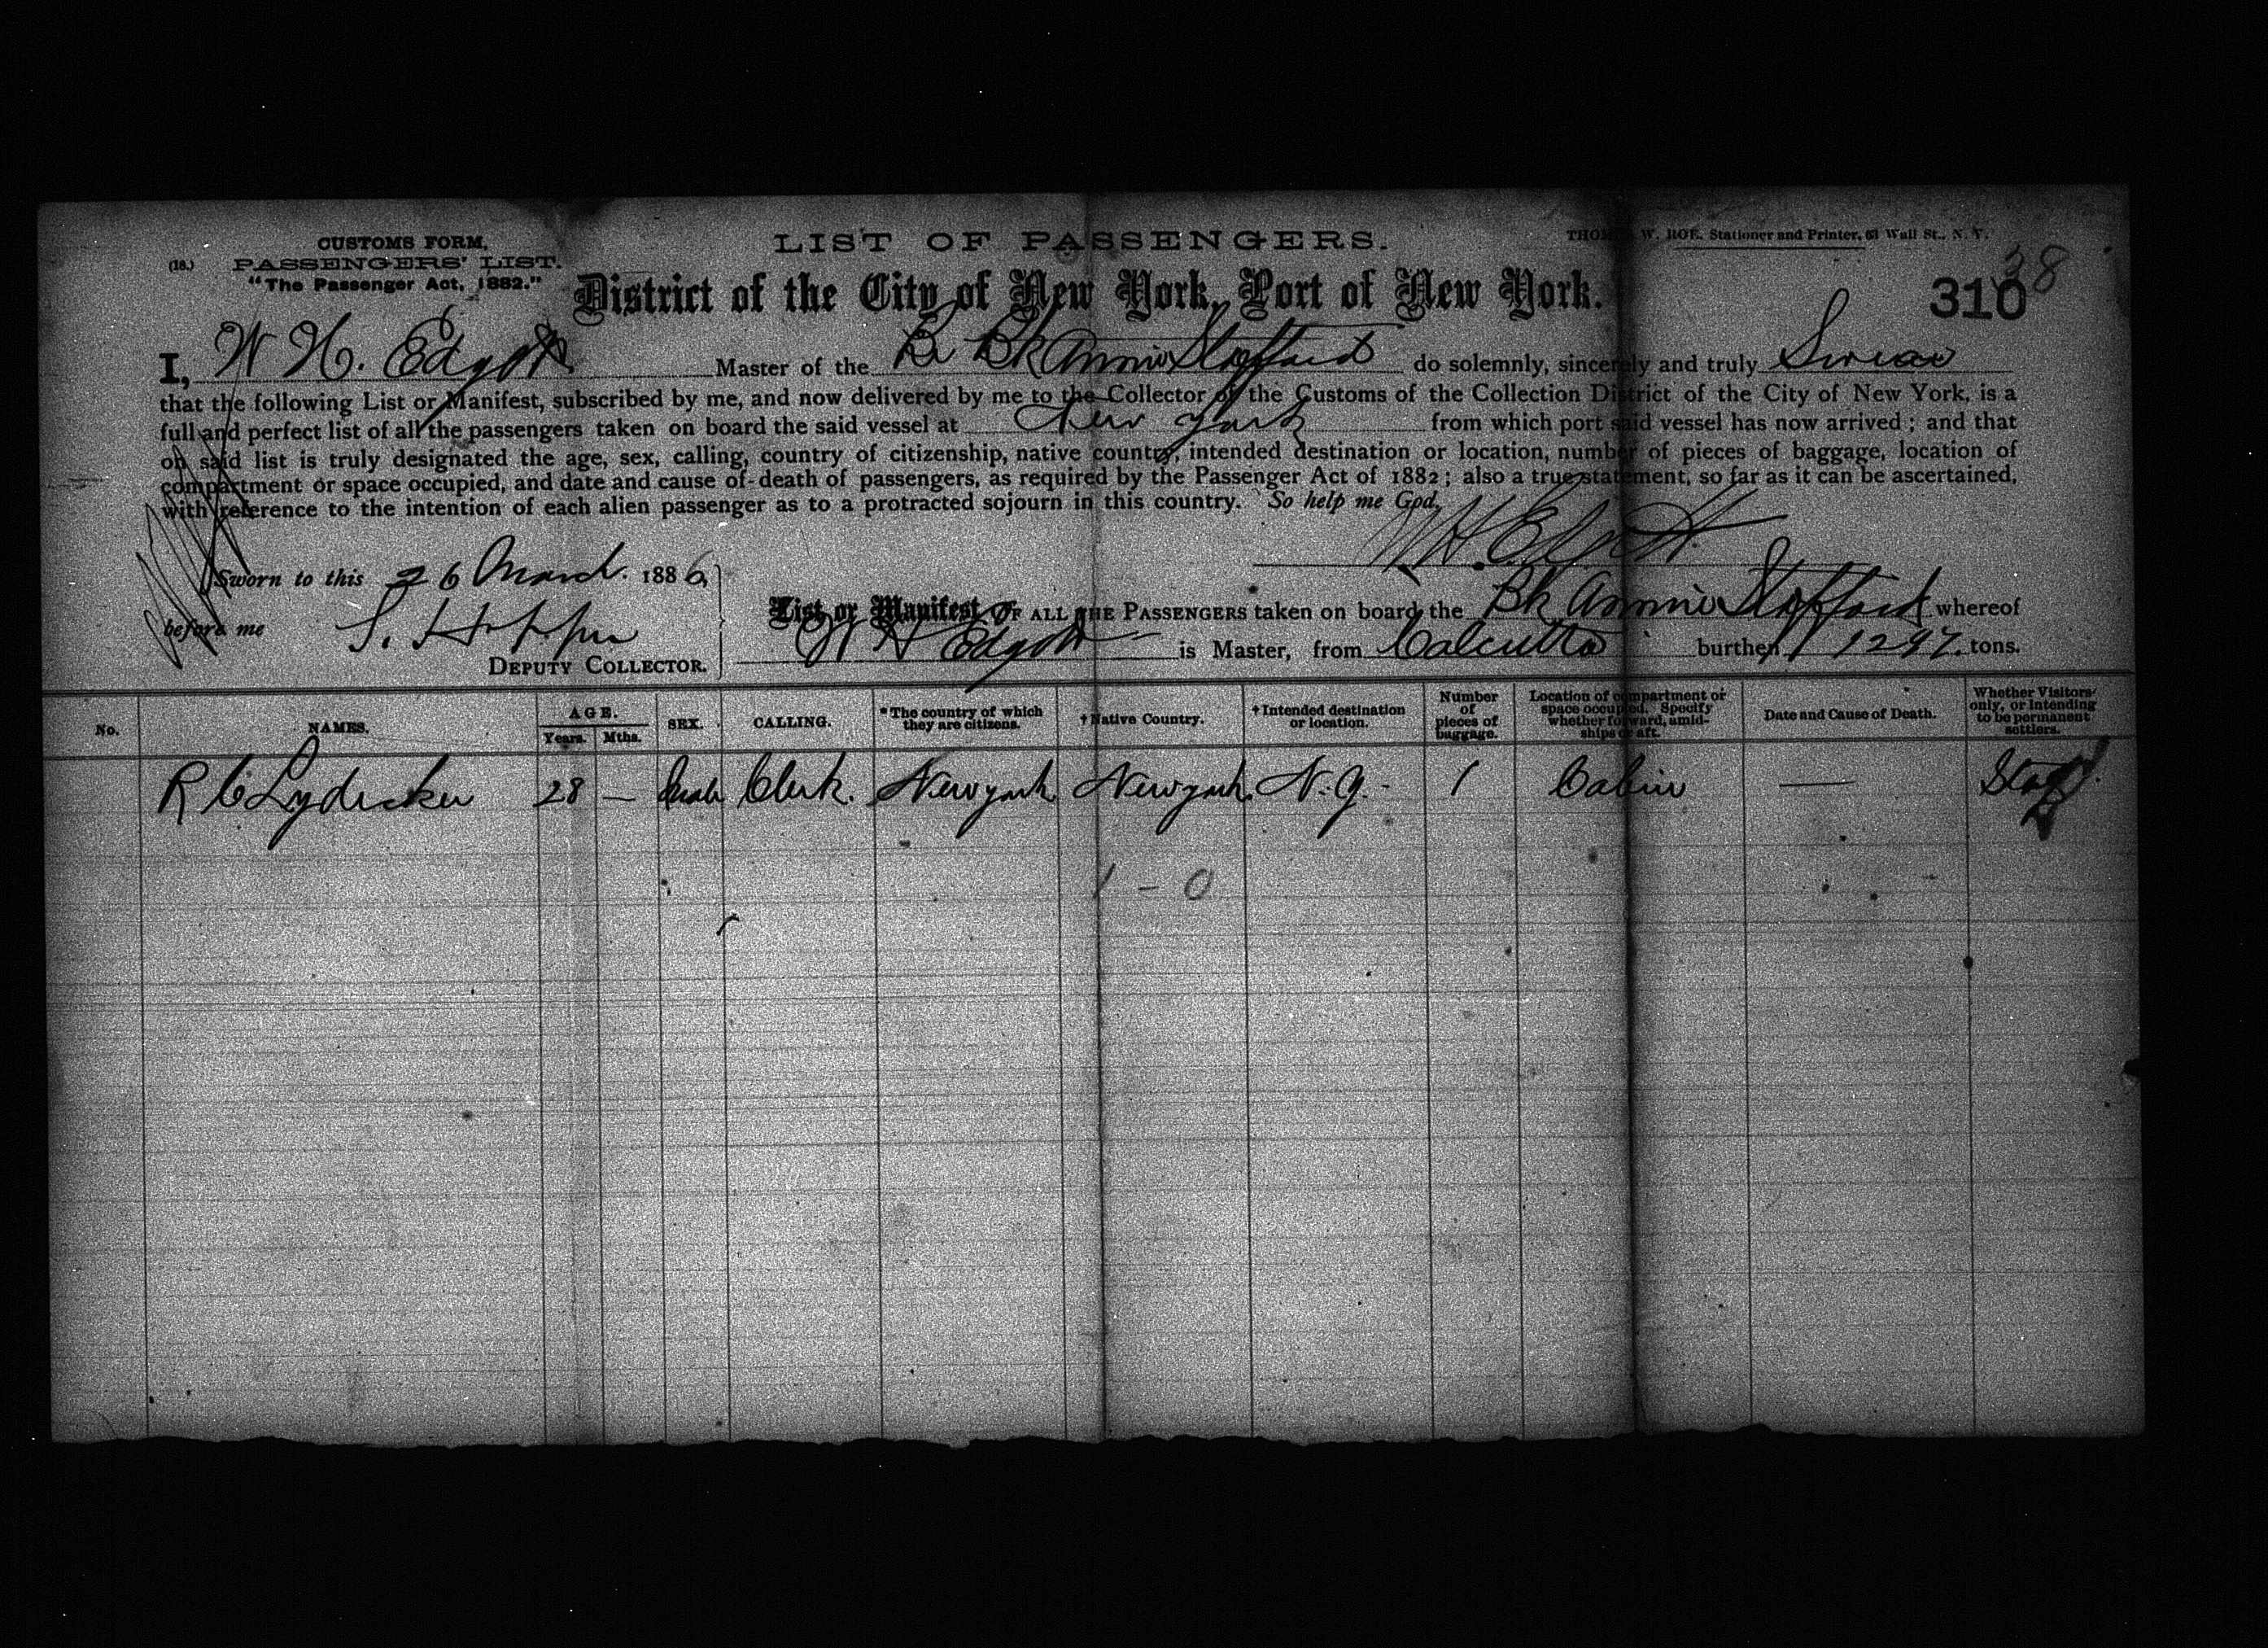 LIST OF PASSENGERS.
THOMAS W. ROE, Stationer and Printer, 63 Wall St., N. Y.
CUSTOMS FORM,
(18.) PASSENGERS' LIST.
"The Passenger Act, 1882."
District of the City of New York, Port of New York.
310
38
I, W H. Edgett Master of the Br Bk Annie Stafford do solemnly, sincerely and truly Swear
that the following List or Manifest, subscribed by me, and now delivered by me to the Collector of the Customs of the Collection District of the City of New York, is a
full and perfect list of all the passengers taken on board the said vessel at New York from which port said vessel has now arrived; and that
on said list is truly designated the age, sex, calling, country of citizenship, native country, intended destination or location, number of pieces of baggage, location of
compartment or space occupied, and date and cause of death of passengers, as required by the Passenger Act of 1882; also a true statement, so far as it can be ascertained,
with reference to the intention of each alien passenger as to a protracted sojourn in this country. So help me God.
W H. Edgett
Sworn to this 26 March 1886,
before me S. Hopper
DEPUTY COLLECTOR.
List or Manifest OF ALL THE PASSENGERS taken on board the Bk Annie Stafford whereof
W H Edgett is Master, from Calcutta burthen 1297 tons.
No. NAMES. AGE. Years. Mths. SEX. CALLING. *The country of which they are citizens. †Native Country. †Intended destination or location. Number of pieces of baggage. Location of compartment or space occupied. Specify whether forward, amidships or aft. Date and Cause of Death. Whether Visitors only, or intending to be permanent settlers.
R C Lydecker 28 — Male Clerk. New york New york N. y. - 1 Cabin — Stay
1 - 0